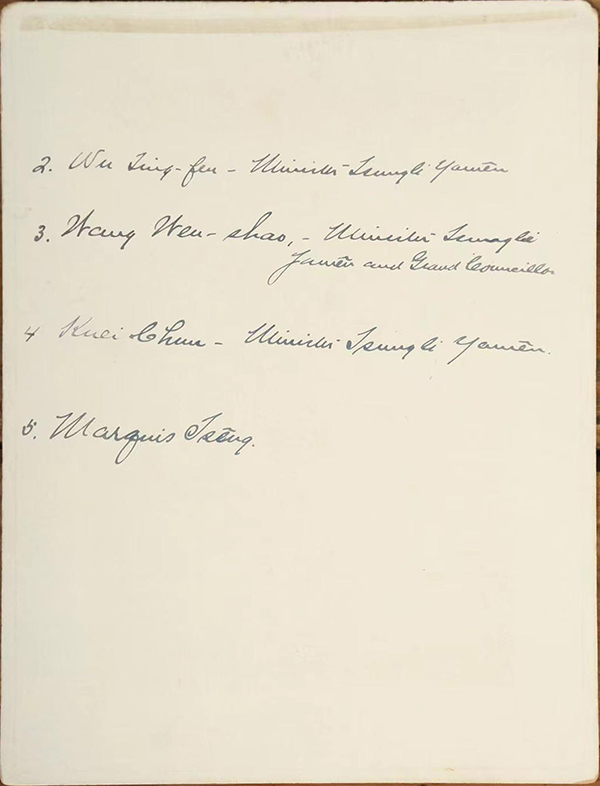 2. Wu Ting-fen - Minister Tsungli Yamên
3. Wang Wen-shao, - Minister Tsungli
Yamên and Grand Councillor
4 Kuei Chun - Minister Tsungli Yamên.
5. Marquis Tsêng.